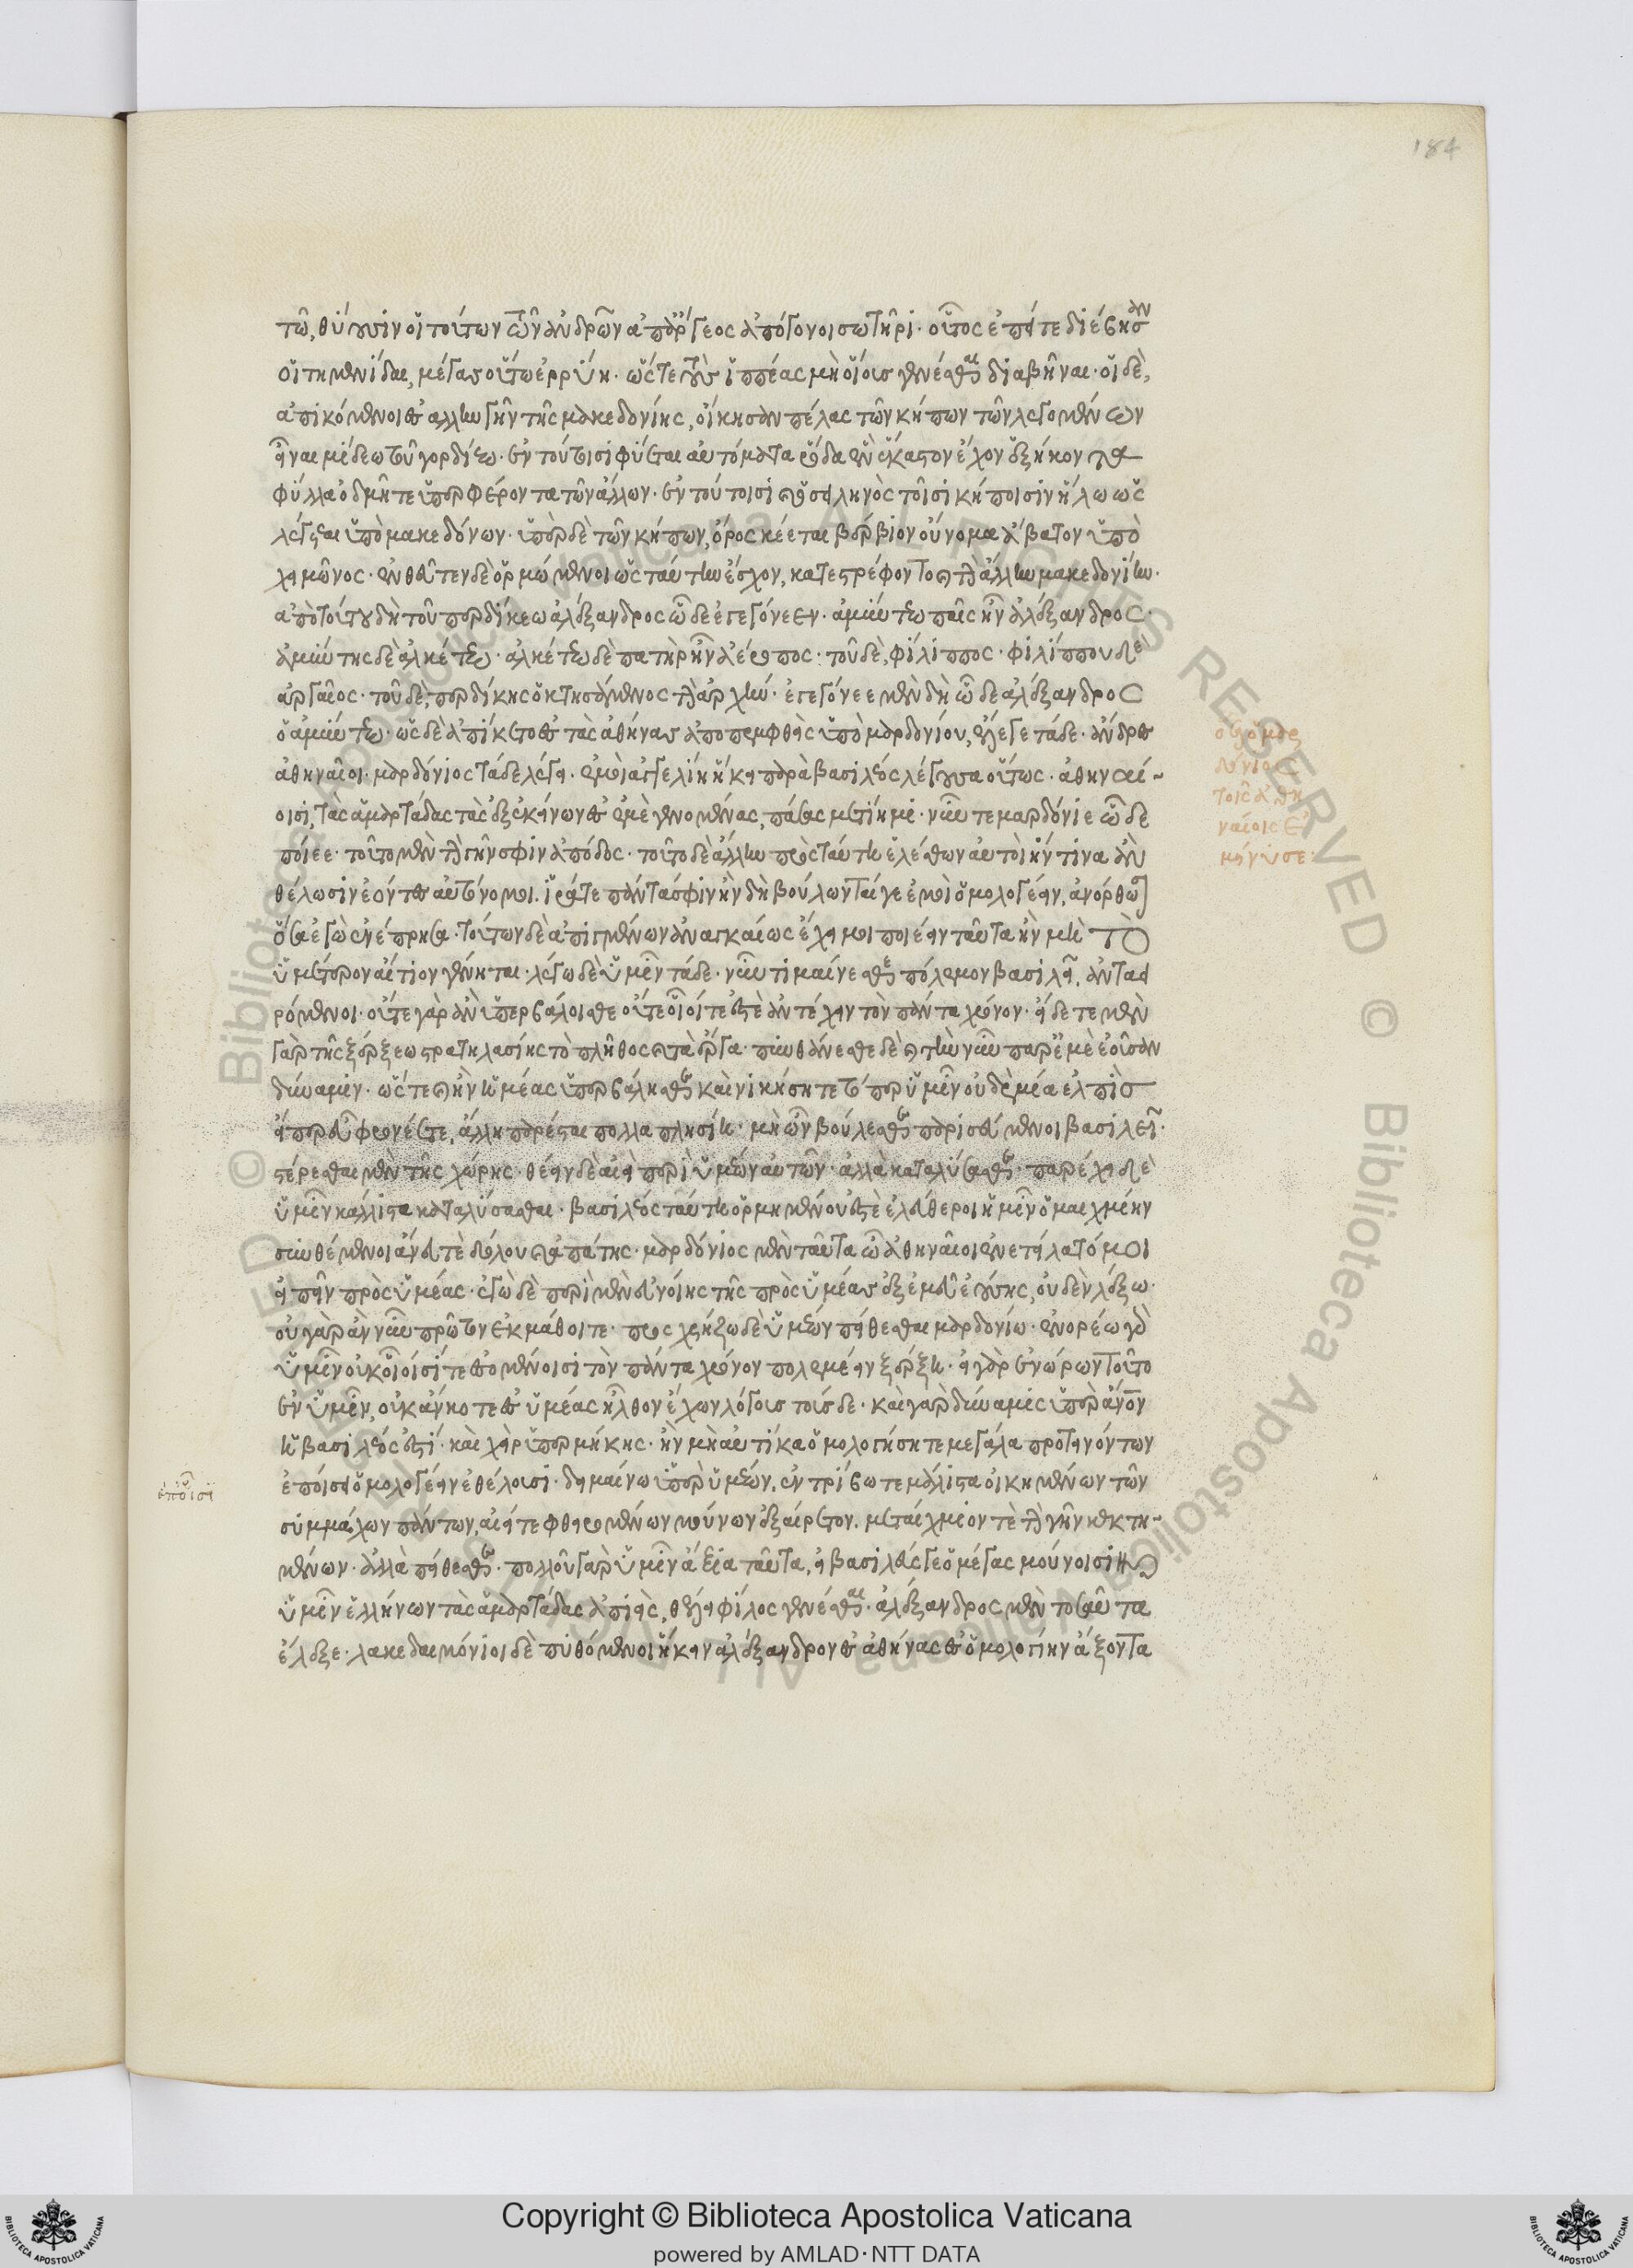 184
τῶ, θύουσιν οἱ τούτων τῶν ἀνδρῶν ἀπ' ἄργεος ἀπόγονοι σωτῆρι· οὗτος ἐπείτε διέβησαν
οἱ τημενίδαι, μέγας οὕτω ἐρρύη· ὥστε τοὺς ἱππέας μὴ οἵους γενέσθαι διαβῆναι· οἱ δὲ,
ἀπικόμενοι ἐς ἄλλην γῆν τῆς μακεδονίης, οἴκησαν πέλας τῶν κήπων τῶν λεγομένων
εἶναι μίδεω τοῦ γορδίεω· ἐν τούτοισι φύεται αὐτόματα ῥόδα ἓν ἕκαστον ἔχον ἑξήκοντα
φύλλα ὀδμῆ τε ὑπερφέροντα τῶν ἄλλων· ἐν τούτοισι καὶ ὁ σειληνὸς τοῖσι κήποισιν ἥλω ὡς
λέγεται ὑπὸ μακεδόνων· ὑπὲρ δὲ τῶν κήπων, ὄρος κέεται βέρβιον οὔνομα ἄβατον ὑπὸ
χειμῶνος· ἐνθεῦτεν δὲ ὁρμώμενοι ὡς ταύτην ἔσχον, κατεστρέφοντο καὶ τὴν ἄλλην μακεδονίην·
ἀπὸ τούτου δὴ τοῦ περδίκεω ἀλέξανδρος ὧδε ἐγεγόνεεν· ἀμύντεω παῖς ἦν ἀλέξανδρος·
ἀμύντης δὲ ἀλκέτεω· ἀλκέτεω δὲ πατὴρ ἦν ἀέροπος· τοῦ δὲ, φίλιππος· φιλίππου δὲ
ἀργαῖος· τοῦ δὲ, περδίκης ὁ κτησάμενος τὴν ἀρχήν· ἐγεγόνεε μὲν δὴ ὧδε ἀλέξανδρος
ὁ ἀμύντεω· ὡς δὲ ἀπίκετο ἐς τὰς ἀθήνας ἀποπεμφθεὶς ὑπὸ μαρδονίου, ἔλεγε τάδε· ἄνδρες
ἀθηναῖοι· μαρδόνιος τάδε λέγει· ἐμοὶ ἀγγελίη ἥκει παρὰ βασιλέος λέγουσα οὕτως· ἀθηναί-
οισι, τὰς ἁμαρτάδας τὰς ἐξ ἐκείνων ἐς ἐμὲ γενομένας, πάσας μετίημι· νῦν τε μαρδόνιε ὧδε
ποίεε· τοῦτο μὲν τὴν γῆν σφιν ἀπόδος· τοῦτο δὲ ἄλλην πρὸς ταύτῃ ἑλέσθων αὐτοὶ ἥντινα ἂν
θέλωσιν ἐόντες αὐτόνομοι. ἱρά τε πάντα σφιν ἢν δὴ βούλωνταί γε ἐμοὶ ὁμολογέειν, ἀνόρθωσον
ὅσα ἐγὼ ἐνέπρησα· τούτων δὲ ἀπιγμένων ἀναγκαίως ἔχει μοι ποιέειν ταῦτα ἢν μὴ τὸ
ὑμέτερον αἴτιον γένηται· λέγω δὲ ὑμῖν τάδε· νῦν τί μαίνεσθε πόλεμον βασιλεῖ ἀνταει
ρόμενοι· οὔτε γὰρ ἂν ὑπερβάλοισθε οὔτε οἷοί τε ἐστὲ ἀντέχειν τὸν πάντα χρόνον· εἴδετε μὲν
γὰρ τῆς ξέρξεω στρατηλασίης τὸ πλῆθος καὶ τὰ ἔργα· πυνθάνεσθε δὲ καὶ τὴν νῦν παρ' ἐμὲ ἐοῦσαν
δύναμιν· ὥστε καὶ ἢν ἡμέας ὑπερβάλησθε καὶ νικήσητε τό περ ὑμῖν οὐδεμέα ἐλπὶς
εἴπερ εὖ φρονέετε, ἄλλη παρέσται πολλαπλησίη· μὴ ὦν βούλεσθε παρισεύμενοι βασιλεῖ·
στέρεσθαι μὲν τῆς χώρης· θέειν δὲ αἰεὶ περὶ ὑμέων αὐτῶν· ἀλλὰ καταλύσασθε· παρέχει δὲ
ὑμῖν κάλλιστα καταλύσασθαι· βασιλέος ταύτῃ ὁρμημένου ἐστὲ ἐλεύθεροι ἡμῖν ὁμαιχμίην
συνθέμενοι ἄνευ τὲ δόλου καὶ ἀπάτης· μαρδόνιος μὲν ταῦτα ὦ ἀθηναῖοι ἐνετείλατό μοι
εἰπεῖν πρὸς ὑμέας· ἐγὼ δὲ περὶ μὲν εὐνοίης τῆς πρὸς ὑμέας ἐξ ἐμεῦ ἐούσης, οὐδὲν λέξω·
οὐ γὰρ ἂν νῦν πρῶτον ἐκμάθοιτε· προσχρηίζω δὲ ὑμέων πείθεσθαι μαρδονίω· ἐνορέω γὰρ
ὑμῖν οὐκ οἵοισί τε ἐσομένοισι τὸν πάντα χρόνον πολεμέειν ξέρξῃ· εἰ γὰρ ἐνώρων τοῦτο
ἐν ὑμῖν, οὐκ ἄν κοτε ἐς ὑμέας ἦλθον ἔχων λόγους τούσδε· καὶ γὰρ δύναμις ὑπὲρ ἄνον
ἡ βασιλέος ἐστί· καὶ χεὶρ ὑπερμήκης· ἢν μὴ αὐτίκα ὁμολογήσητε μεγάλα προτεινόντων
ἐποῖσι ὁμολογέειν ἐθέλουσι· δειμαίνω ὑπὲρ ὑμέων, ἐν τρίβω τε μάλιστα οἰκημένων τῶν
συμμάχων πάντων, αἰεί τε φθειρομένων μούνων ἐξαίρετον, μεταίχμιον τὲ τὴν γῆν κεκτη-
μένων· ἀλλὰ πείθεσθε· πολλοῦ γὰρ ὑμῖν ἄξια ταῦτα, εἰ βασιλεύς γε ὁ μέγας μούνοισι
ὑμῖν ἑλλήνων τὰς ἁμαρτάδας ἀπιεὶς, θέλει φίλος γενέσθαι· ἀλέξανδρος μὲν ταῦτα
ἔλεξε· λακεδαιμόνιοι δὲ πυθόμενοι ἥκειν ἀλέξανδρον ἐς ἀθήνας ἐς ὁμολογίην ἄξοντα
μαρ
δόνιος
τοῖς ἀθη
ναίοις ἐ
μήνυσε·
Copyright © Biblioteca Apostolica Vaticana
powered by AMLAD·NTT DATA